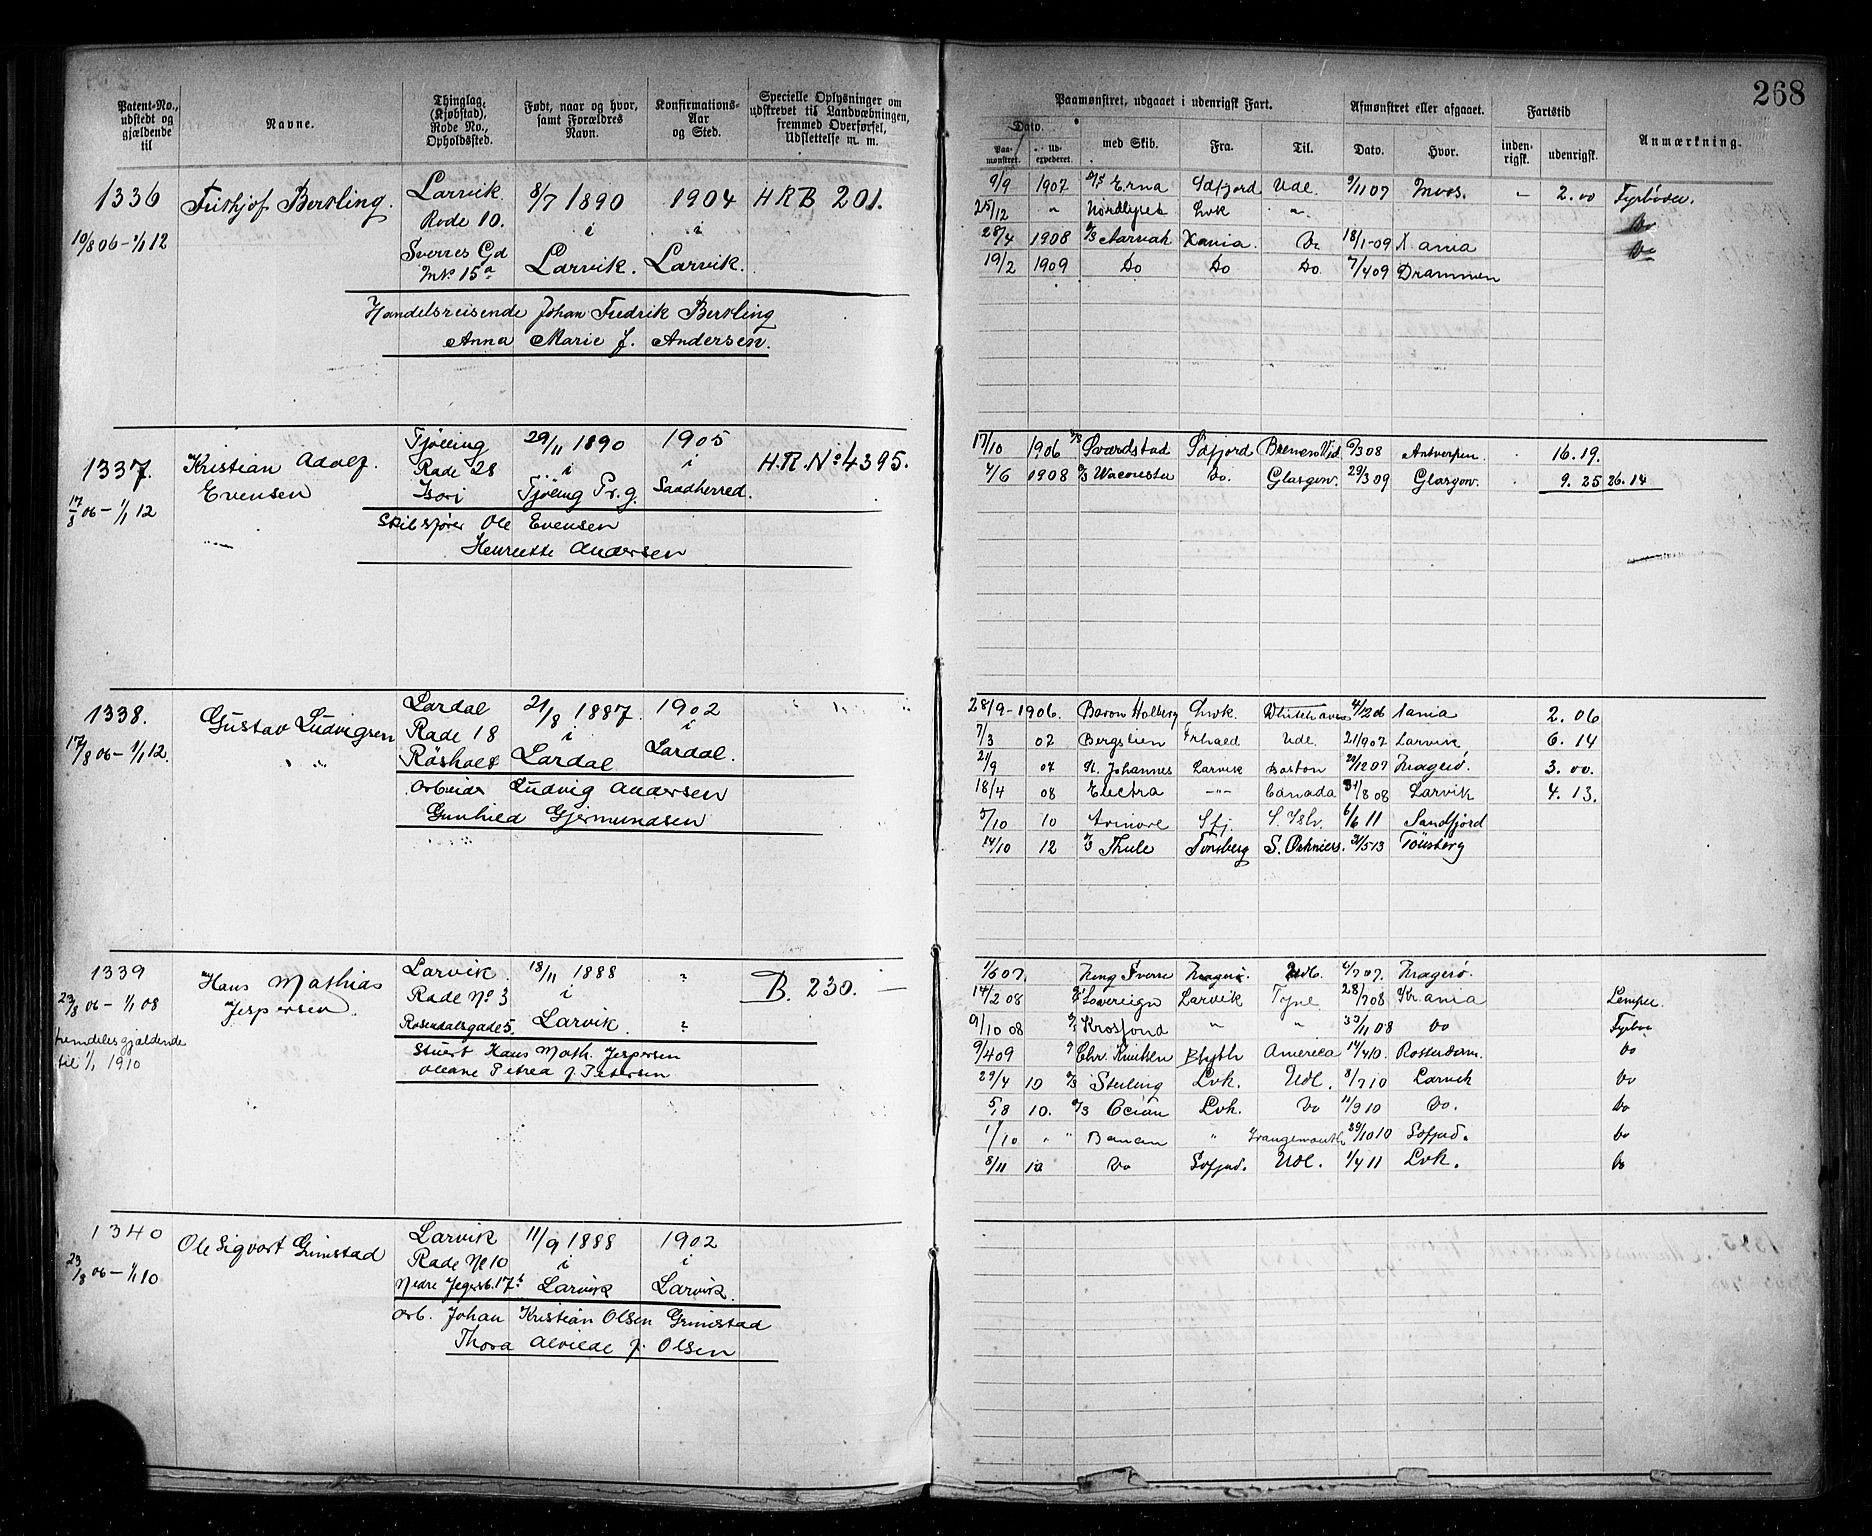 268
Patent-No., udstedt og gjældende til
Navne.
Thinglag, (Kjøbstad), Rode No., Opholdssted.
Født, naar og hvor, samt Forældres Navn.
Konfirmations-Aar og Sted.
Specielle Oplysninger om udskrevet til Landværningen, fremmed Overførsel, Udslettelse m. m.
Paamønstret, udgaaet i udenrigsk Fart.
Afmønstret eller afgaaet.
Fartstid
Anmærkning.
Dato.
Paa-mønstret.
Ud-expederet.
med Skib.
Fra.
Til.
Dato.
Hvor.
inden-rigsk.
udenrigsk.
1336 Frithjof Bertling. Larvik 8/7 1890 1904 HRB 201.
Rode 10. i i
10/8 06 - 1/1 12 Sverres Gd Larvik. Larvik.
No. 15a
Handelsreisende Johan Fredrik Bertling
Anna Marie f. Andersen.
9/9 1907 Erna Sdfjord Udl. 9/11 07 Moss. - 2.00 Fyrbøder.
25/12 " Nordlyset Lvk " Do
28/4 1908 Aarvak Xania. Do 18/1-09 Xania Do
19/2 1909 Do Do Do 7/4 09 Drammen
1337. Kristian Adolf Evensen Tjølling 29/11 1890 1905 H.R. No 4395.
Rode 28 i i
17/8 06 - 1/1 12 Tjølling Pr.g. Sandherred.
Skibsfører Ole Evensen
Henriette Andersen
17/10 1906 Sværdstad Sdfjord Bremen 9/3 08 Antwerpen. 16.19.
4/6 1908 Do. Glasgow. 29/3 09 Glasgow. 9.25 26.14
1338. Gustav Ludvigsen Lardal 21/8 1887. 1902
Rode 18 i i
17/8 06 - 1/1 12. Røsholt Lardal Lardal.
Arbeider Ludvig Andersen
Gunhild Gjermundsen
28/9 - 1906. Baron Holberg Lvk. Whitehaven 4/12 06 Xania 2.06
7/3 07 Bergslien Frhald Udl. 21/9 07 Larvik, 6.14
21/9 07 St. Johannes Larvik Boston 29/12 07 Kragerø. 3.00.
18/4 08 Electra -"- Canada 31/8 08 Larvik 4.13.
5/10 10 Sfj. 6/6 11 Sandfjord
14/10 12 Thule Tønsberg S. Orkniers. 31/5 13 Tønsberg
1339 Hans Mathias Jespersen. Larvik 18/11 1888 " B. 230. -
Rode No 3 i
29/8 06 - 1/1 08 Rosendalsgade 5. Larvik. "
fremdeles gjældende til 1/1 1910
Stuert Hans Math. Jespersen
Oleane Petrea f. Petersen.
1/6 07. Kong Sverre Kragerø Udl. 6/7 07. Kragerø.
14/2 08 Sovereign Larvik Tyne 28/7 08 Kr.ania Lemper.
9/10 08 Krosfond " " 30/11 08 Do Fyrbø
9/4 09 Chr. Knudsen Blyth America 14/4 10. Rotterdam. Do
29/4 10 Sterling Lvk. Udl. 8/7 10 Larvik Do
5/8 10. Lvk. Do 11/9 10 Do. Do
1/10 " " Banan " Grangemouth 29/10 10 Sdfjord. Do
8/11 10 Do Sdfjord. Udl. 1/4 11 Lvk. Do
1340 Ole Sigvart Grimstad Larvik 11/9 1888 1902
Rode No 10 i i
23/8 06 - 1/1 10 Nedre Jegersb. 17b Larvik Larvik.
Arb. Johan Kristian Olsen Grimstad
Thora Alvilde f. Olsen